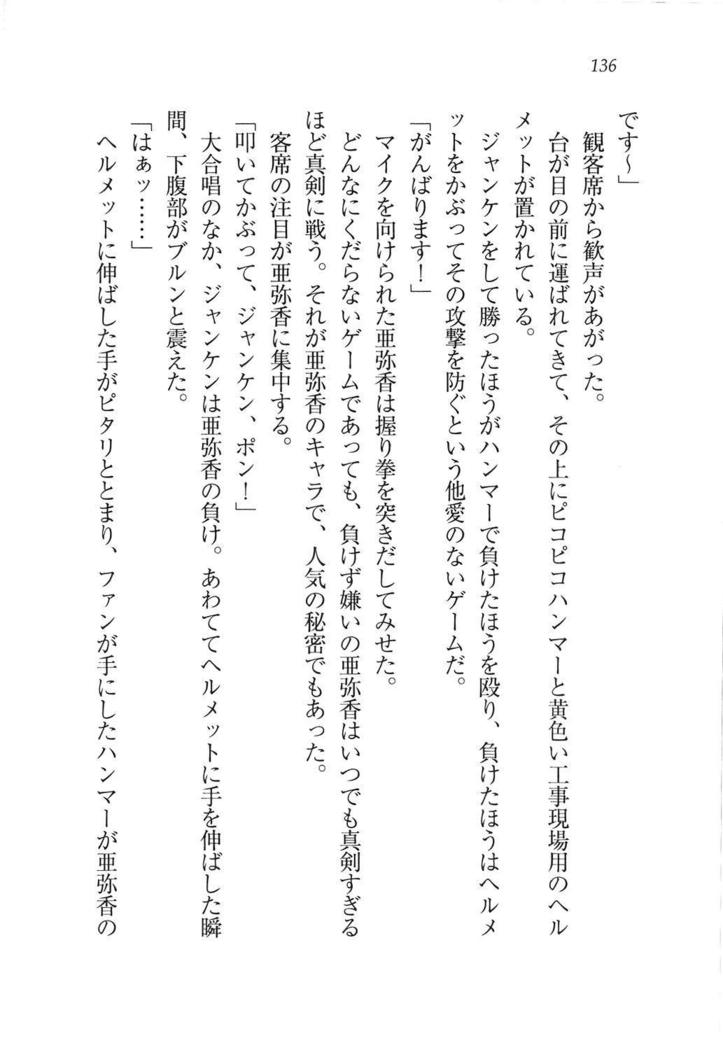 136
です～」
　観客席から歓声があがった。
　台が目の前に運ばれてきて、その上にピコピコハンマーと黄色い工事現場用のヘル
メットが置かれている。
　ジャンケンをして勝ったほうがハンマーで負けたほうを殴り、負けたほうはヘルメ
ットをかぶってその攻撃を防ぐという他愛のないゲームだ。
「がんばります！」
　マイクを向けられた亜弥香は握り拳を突きだしてみせた。
　どんなにくだらないゲームであっても、負けず嫌いの亜弥香はいつでも真剣すぎる
ほど真剣に戦う。それが亜弥香のキャラで、人気の秘密でもあった。
　客席の注目が亜弥香に集中する。
「叩いてかぶって、ジャンケン、ポン！」
　大合唱のなか、ジャンケンは亜弥香の負け。あわててヘルメットに手を伸ばした瞬
間、下腹部がブルンと震えた。
「はぁッ……」
　ヘルメットに伸ばした手がピタリととまり、ファンが手にしたハンマーが亜弥香の